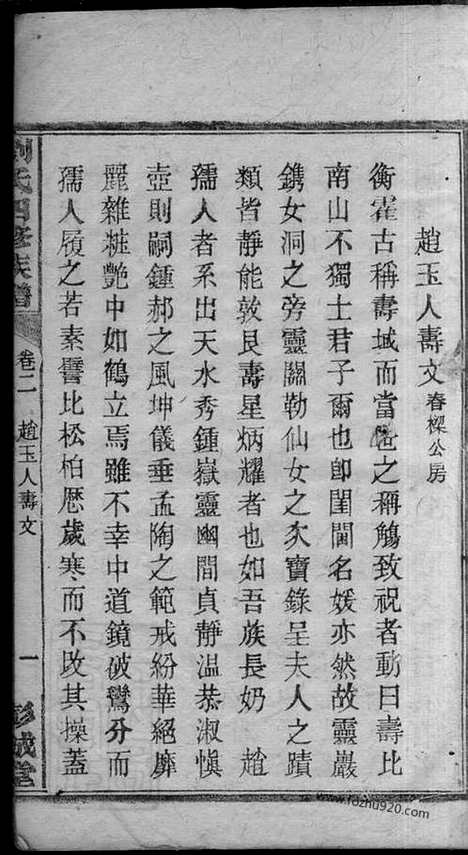 趙玉人壽文春樑公房
衡霍古稱壽域而當世之稱觴致祝者動曰壽比
南山不獨士君子爾也卽閨閫名媛亦然故靈巖
鐫女洞之旁靈關勒仙女之文寶錄呈夫人之蹟
類皆靜能敦艮壽星炳耀者也如吾族長奶　趙
孺人者系出天水秀鍾嶽靈幽間貞靜溫恭淑愼
壼則嗣鍾郝之風坤儀垂孟陶之範戒紛華絕靡
麗雜粧艷中如鶴立焉雖不幸中道鏡破鸞分而
孺人履之若素譬比松柏厯歲寒而不改其操蓋
劉氏四修族譜
卷二
趙玉人壽文
一
彭城堂
www.fozhu920.com